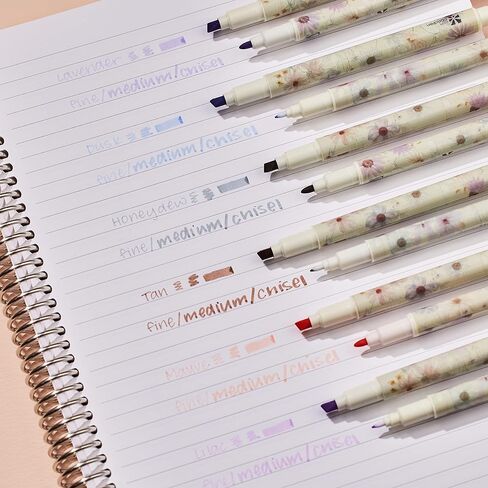 Lavender
fine/medium/chisel
Dusk
fine/medium/chisel
Honeydew
fine/medium/chisel
Tan
fine/medium/chisel
Mauve
fine/medium/chisel
Lilac
fine/medium/chisel